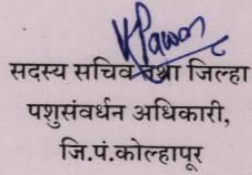 VPawar
सदस्य सचिव तथा जिल्हा
पशुसंवर्धन अधिकारी,
जि.पं.कोल्हापूर